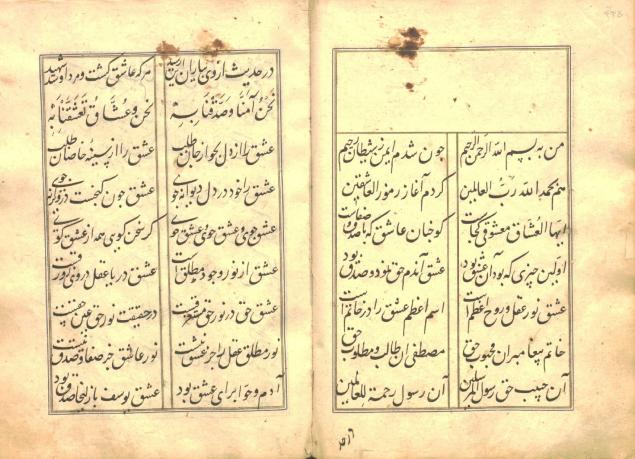 من به بسم الله الرحمن الرحیم چون شدم ایمن ز شیطان رجیم
هم بحمد الله رب العالمین کردم آغاز رموز العاشقین
ایها العشاق معشوقی کجاست کو خان عاشق که با صدق و صفاست
اولین چیزی که بود آن عشق بود عشق آندم حق نمود و صدق بود
عشق نور عقل و روح اعظم است اسم اعظم عشق را در خاتم است
خاتم پیغامبران محبوب حق مصطفی آن طالب و مطلوب حق
آن حبیب حق رسول المرسلین آن رسول رحمة للعالمین
در حدیث از وی بیاران این رسید هر که عاشق گشت و مرد او شد شهید
نحن آمنا و صدقنا به نحن و عشاق تعشقنا به
عشق را از دل بجو از جان طلب عشق را از سینه خاصان طلب
عشق را خود در دل دیوانه جوی عشق چون گنجست در ویرانه جوی
عشق جوی و عشق جوی و عشق جوی گر سخن گویی همه از عشق گوی
عشق از نور وجود مطلق است عشق دریا عقل در وی زورقست
عشق حق در نور حق در حقیقت نور حق عین حقست
نور مطلق عقل را جز عشق نیست نور عاشق جز صفا و صدق نیست
آدم و حوا برای عشق بود عشق یوسف با زلیخا صدق بود